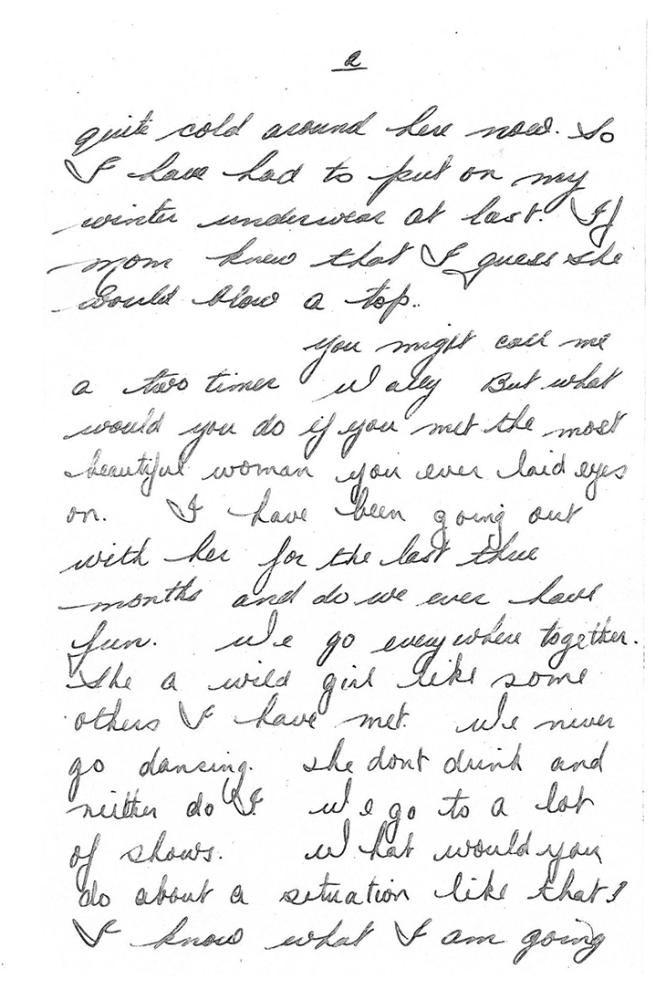 2
quite cold around here now. So
I have had to put on my
winter underwear at last. If
mom knew that I guess she
would blow a top..
you might call me
a two timer Wally But what
would you do if you met the most
beautiful woman you ever laid eyes
on. I have been going out
with her for the last three
months and do we ever have
fun. We go everywhere together.
She a wild girl like some
others I have met We never
go dancing. she dont drink and
neither do I. We go to a lot
of shows. What would you
do about a situation like that?
I know what I am going